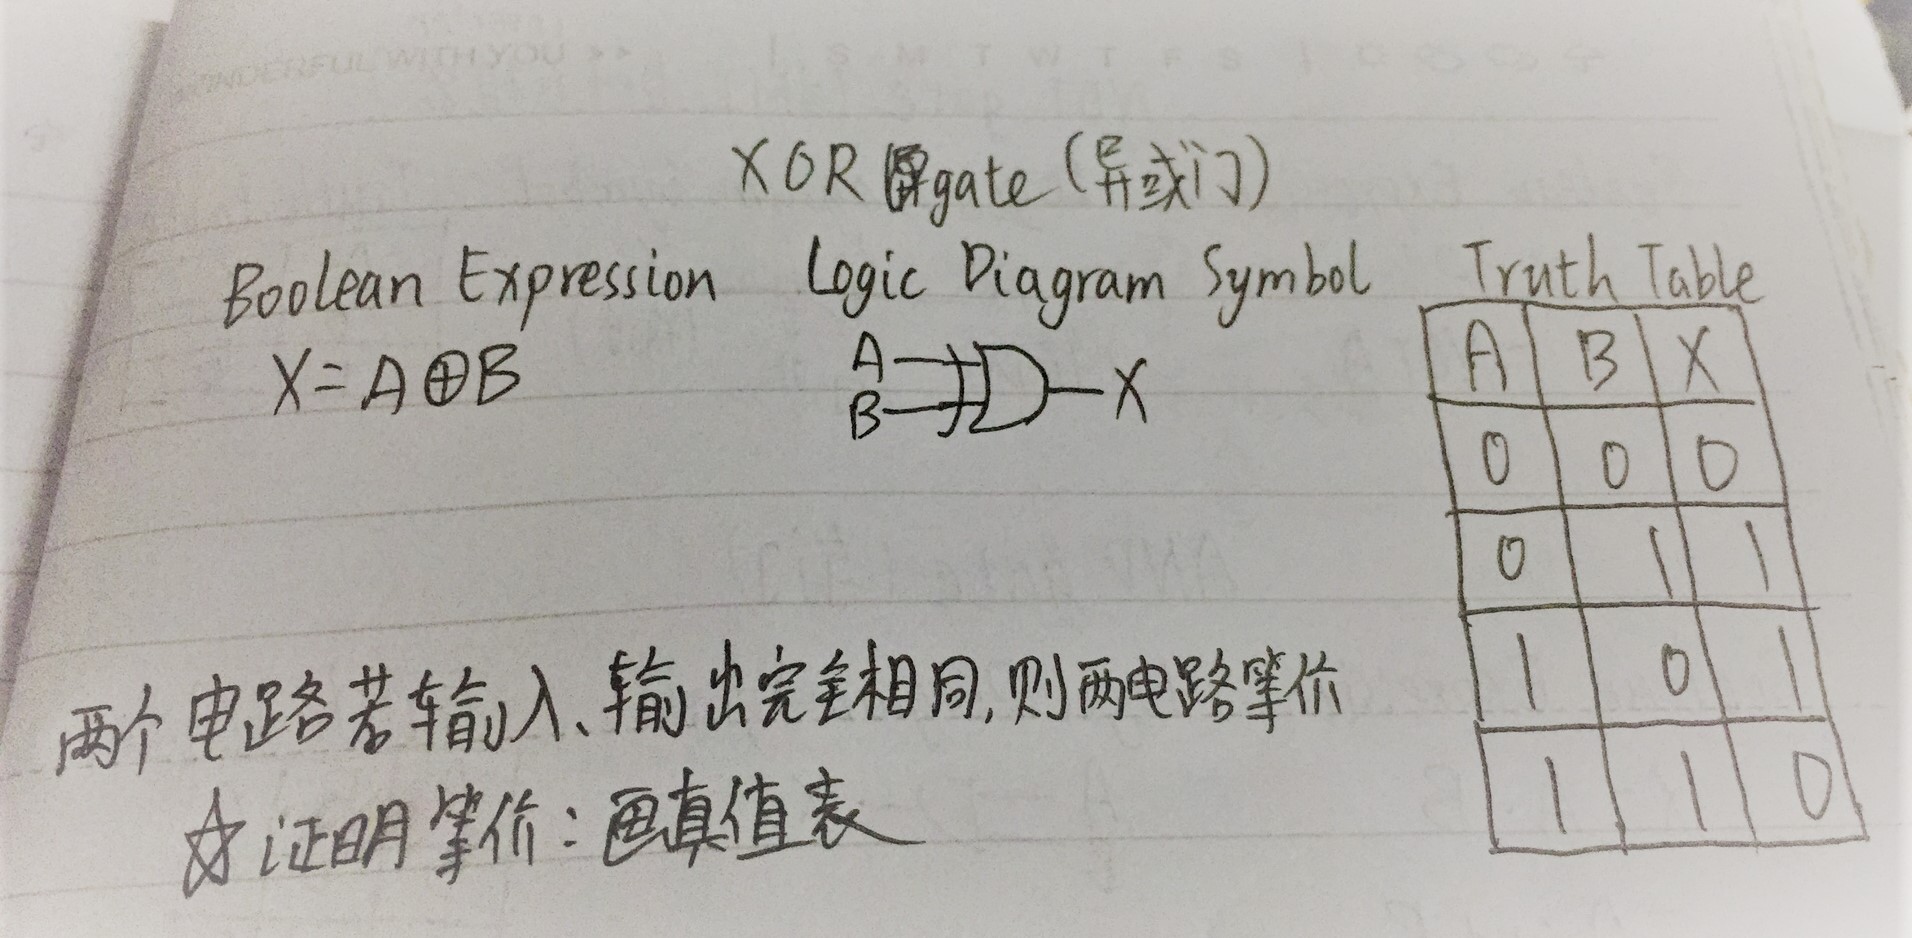 WONDERFUL WITH YOU
XOR gate (异或门)
Boolean Expression Logic Diagram Symbol Truth Table
X=A⊕B
A
B
X
A B X
0 0 0
0 1 1
1 0 1
1 1 0
两个电路若输入、输出完全相同,则两电路等价
☆证明等价:画真值表